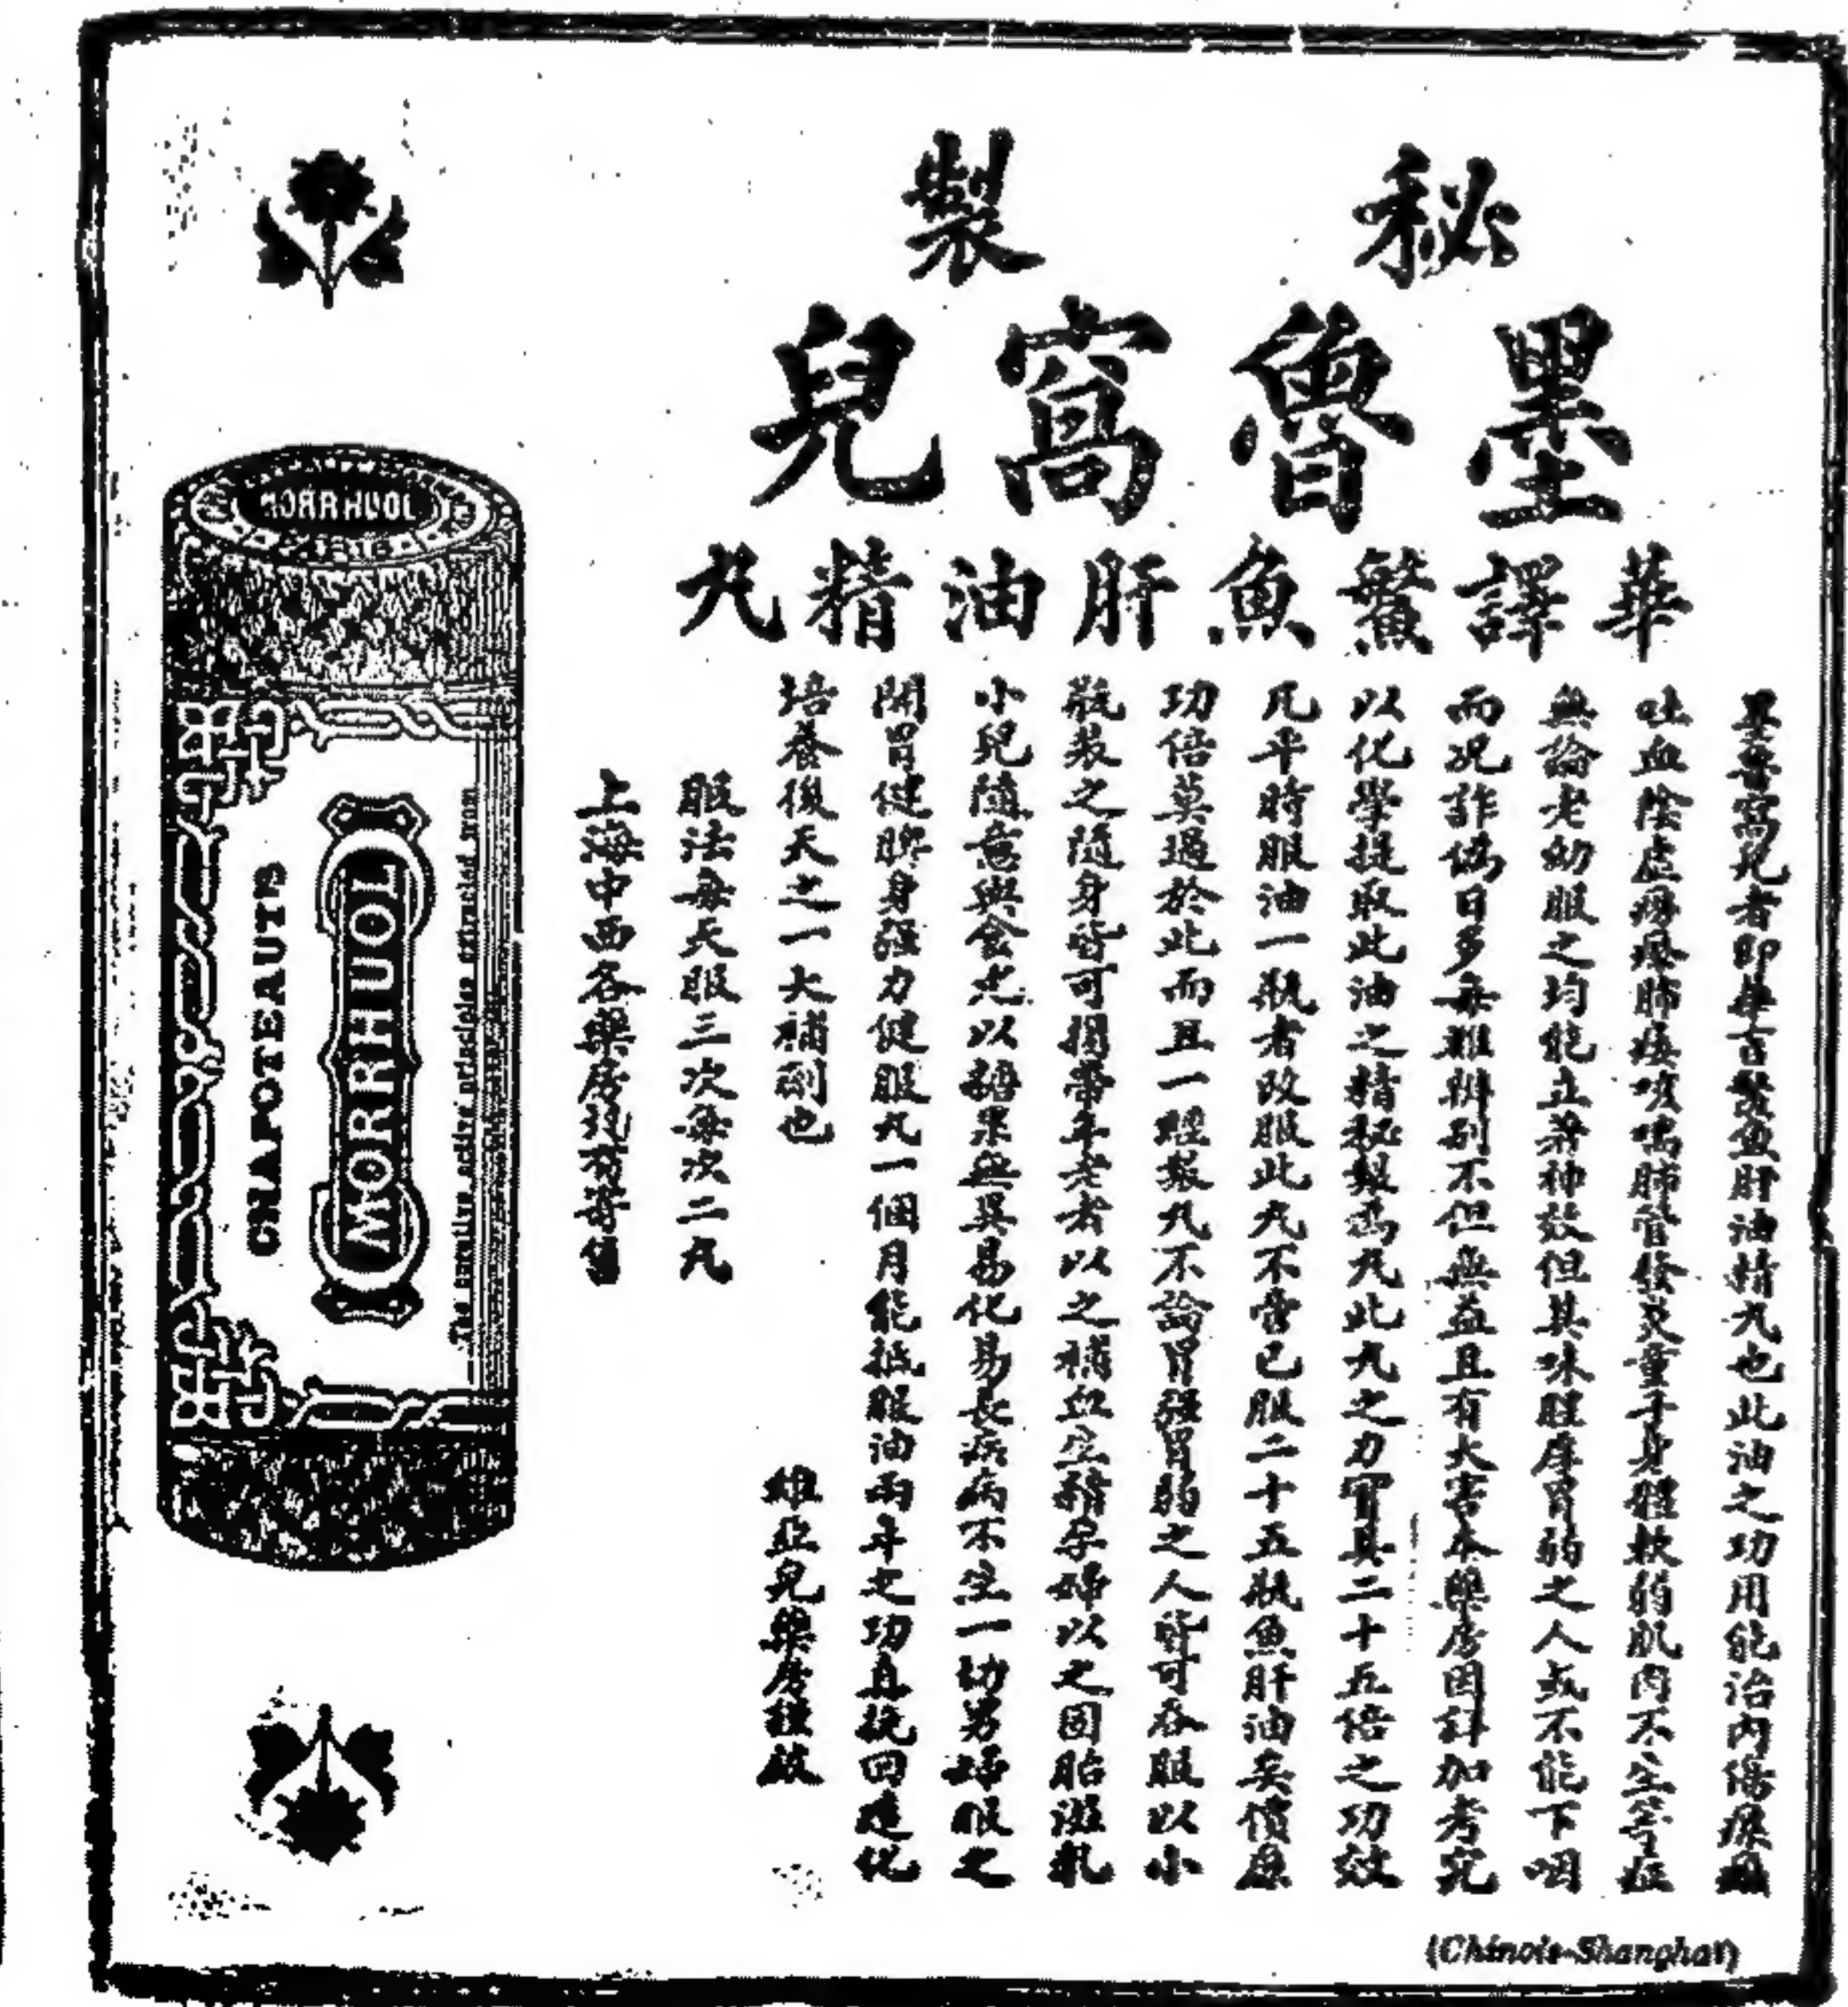 秘製
墨魯窩兒
華譯鰵魚肝油精丸
墨魯窩兒者即華言鰵魚肝油精丸也此油之功用能治內傷瘰癧
吐血陰虛癆瘵肺痿咳嗆肺管發炎童子身體軟弱肌肉不生等症
無論老幼服之均能立著神效但其味腥厚胃弱之人或不能下咽
而况詐偽日多每難辨別不但無益且有大害本藥房因詳加考究
以化學提取此油之精秘製為丸此丸之力實具二十五倍之功效
凡平時服油一瓶者改服此丸不啻已服二十五瓶魚肝油矣價廉
功倍莫過於此而且一經製丸不論胃強胃弱之人皆可吞服以小
瓶裝之隨身皆可攜帶年老者以之補血生精孕婦以之固胎滋乳
小兒隨意與食尤以糖果無異易化易長疾病不生一切男婦服之
開胃健脾身強力健服丸一個月能抵服油兩年之功真挽回造化
培養後天之一大補劑也
維亞兒藥房謹啟
服法每天服三次每次二丸
上海中西各藥房均有寄售
MORRHUOL
CHAPOTEAUT'S
MORRHUOL
The curative active principles extracted from
(Chinois-Shanghai)